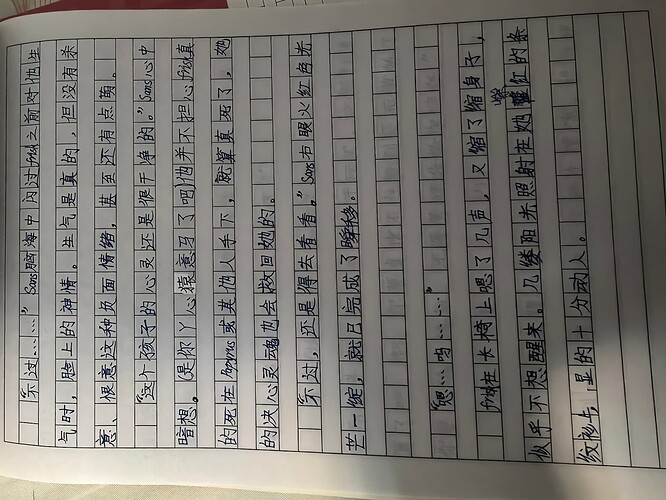 “不过……”Sans脑海中闪过frisk之前对他生
气时，脸上的神情。生气是真的，但没有杀
意、恨意这种负面情绪，甚至还有点萌。
“这个孩子的心灵还是很干净的。”Sans心中
暗想。（是你丫心猿意马了吧)他并不担心frisk真
的死在Papyrus或其他人手下，就算真死了，她
的决心灵魂也会救回她的。
“不过，还是得去看看。”Sans右眼火红色光
芒一绽，就已完成了瞬移。
“嗯…呜……”
frisk在长椅上嗯了几声，又缩了缩身子，
似乎不想醒来。几缕阳光照射在她紫红的条
纹衫上，显的十分动人。